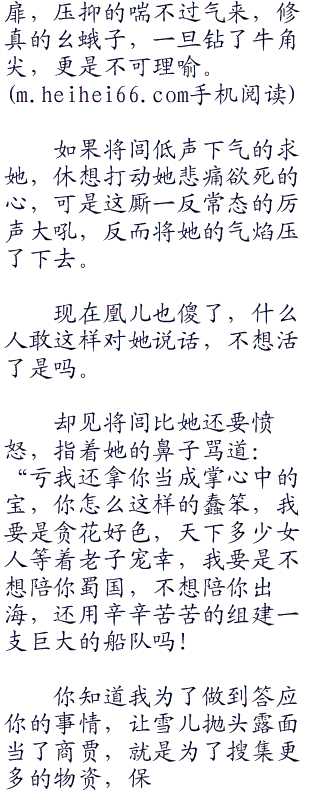 靡，压抑的喘不过气来，修
真的幺蛾子，一旦钻了牛角
尖，更是不可理喻。
(m.heihei66.com手机阅读)
如果将闾低声下气的求
她，休想打动她悲痛欲死的
心，可是这厮一反常态的厉
声大吼，反而将她的气焰压
了下去。
现在凰儿也傻了，什么
人敢这样对她说话，不想活
了是吗。
却见将闾比她还要愤
怒，指着她的鼻子骂道：
“亏我还拿你当成掌心中的
宝，你怎么这样的蠢笨，我
要是贪花好色，天下多少女
人等着老子宠幸，我要是不
想陪你蜀国，不想陪你出
海，还用辛辛苦苦的组建一
支巨大的船队吗！
你知道我为了做到答应
你的事情，让雪儿抛头露面
当了商贾，就是为了搜集更
多的物资，保